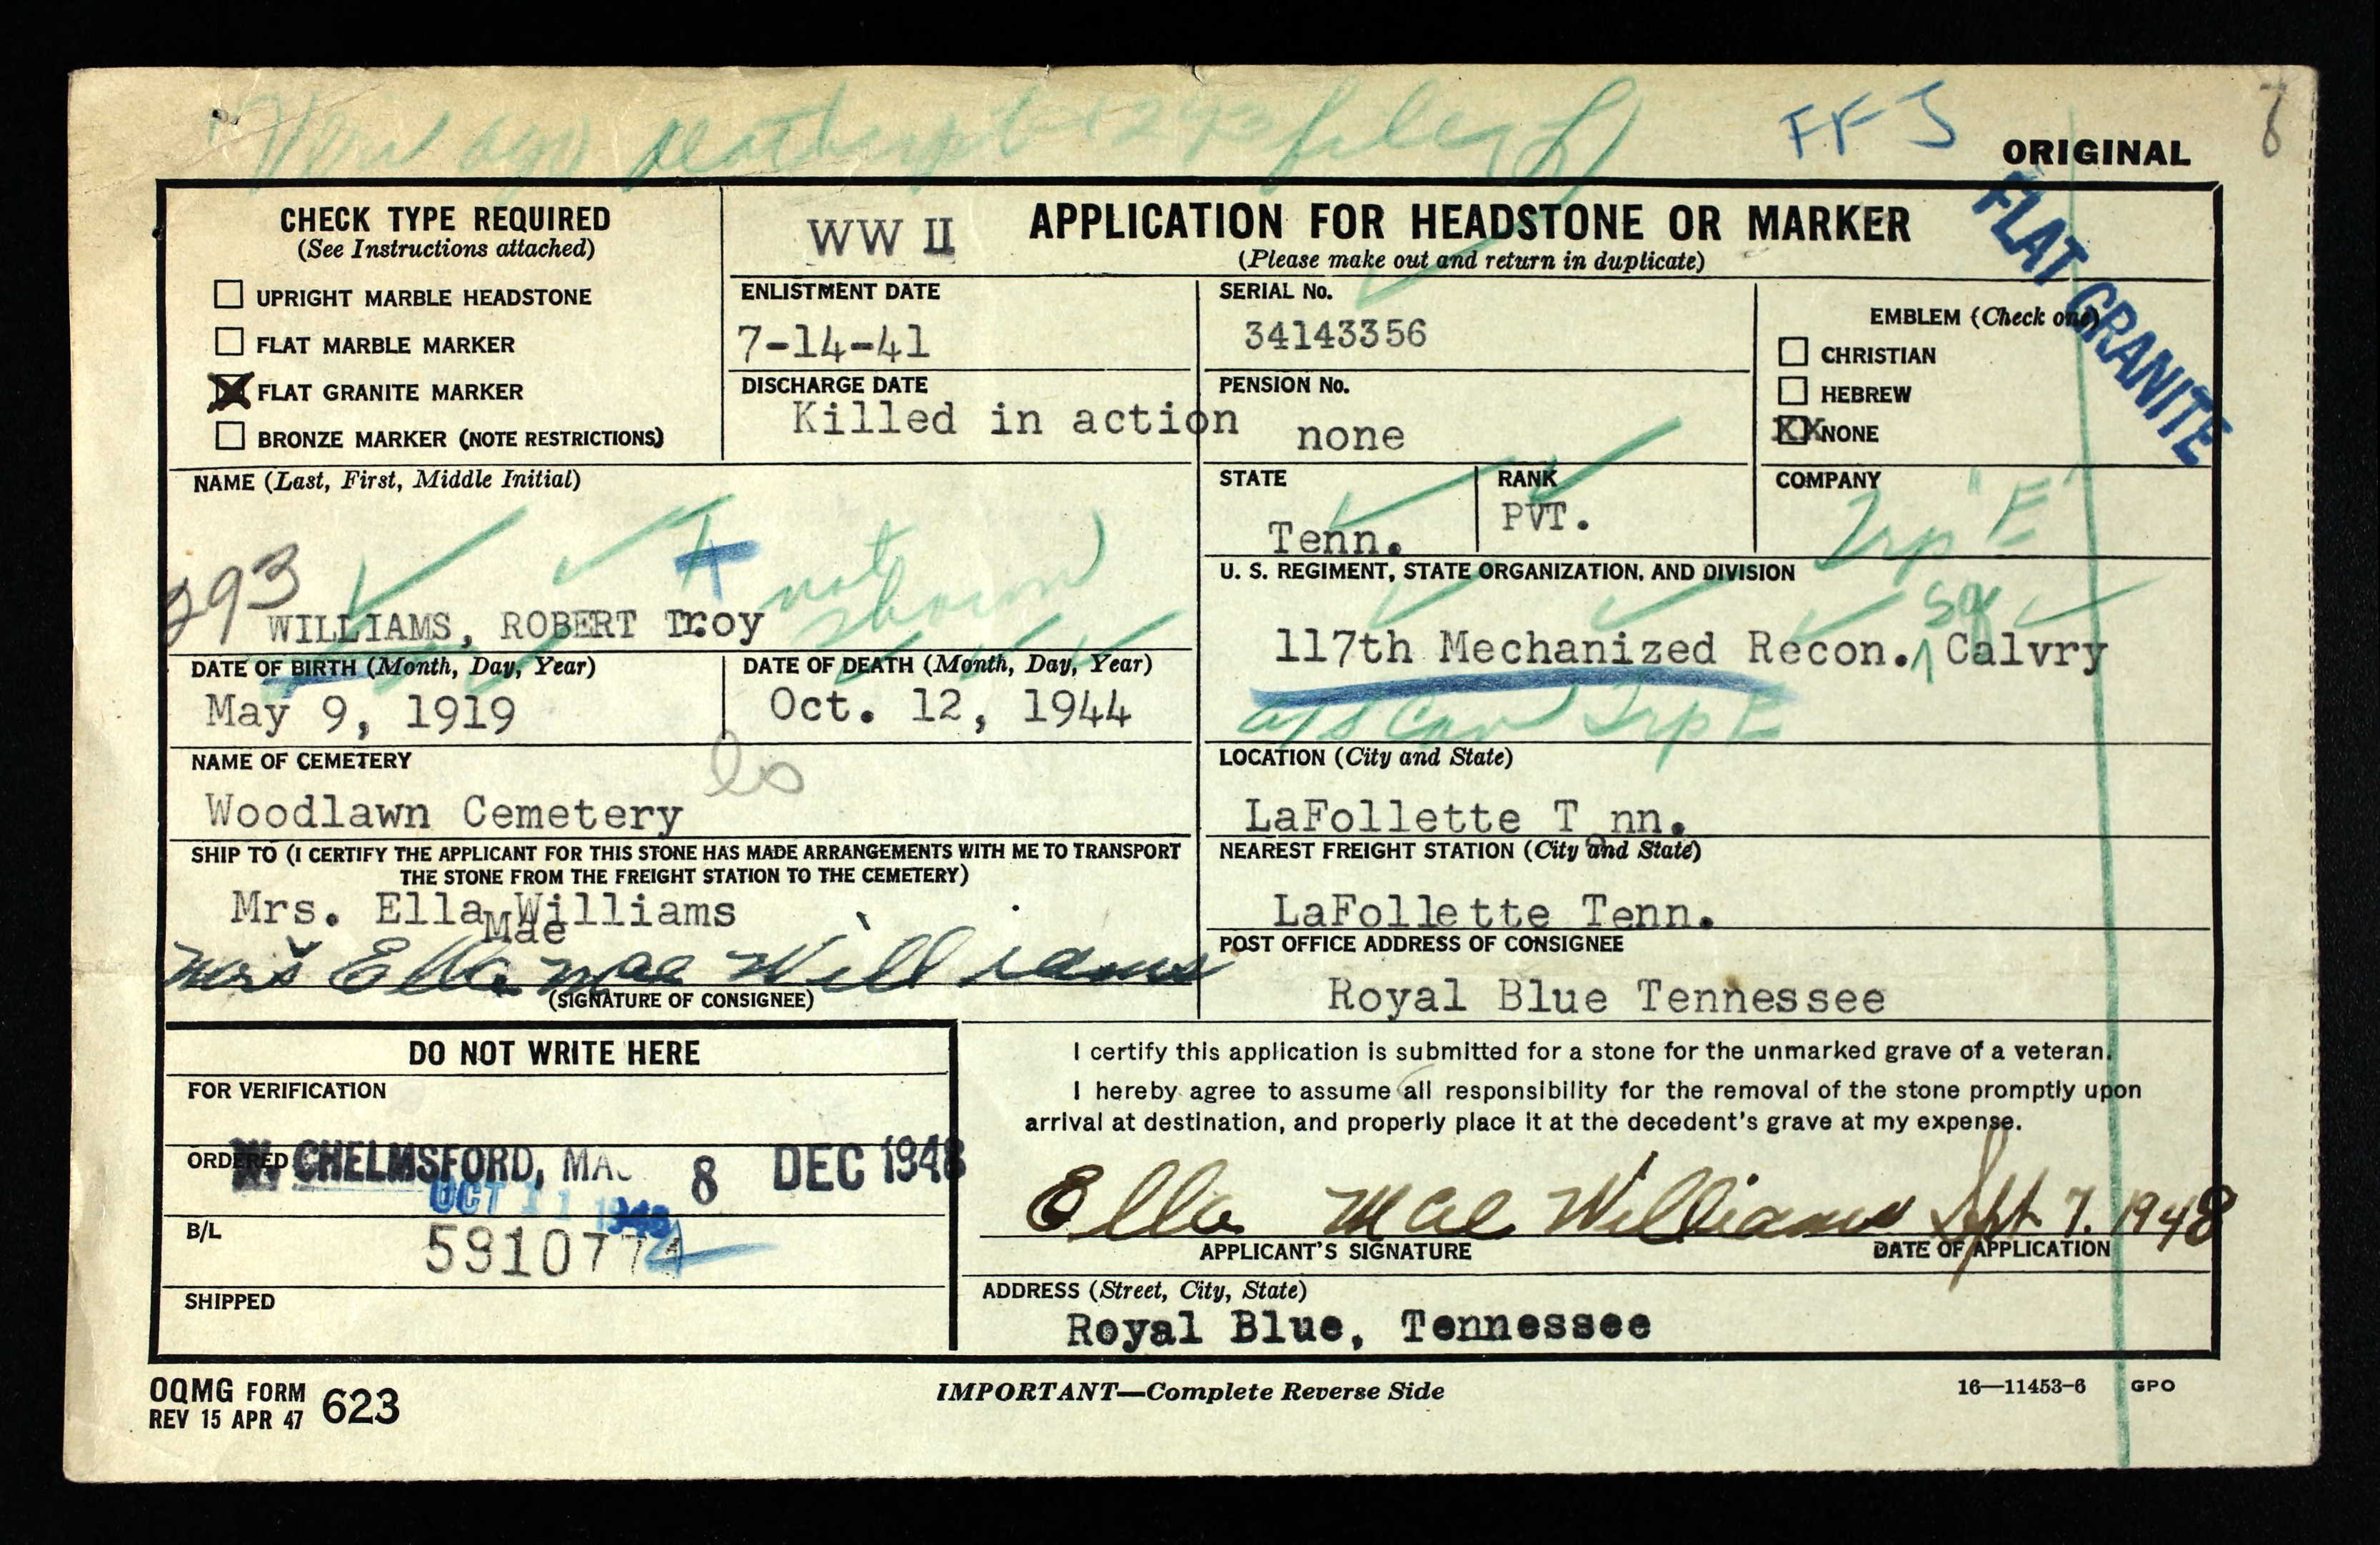 FFJ
8
ORIGINAL
FLAT GRANITE
CHECK TYPE REQUIRED
(See Instructions attached)
UPRIGHT MARBLE HEADSTONE
FLAT MARBLE MARKER
FLAT GRANITE MARKER
BRONZE MARKER (NOTE RESTRICTIONS)
WW II
APPLICATION FOR HEADSTONE OR MARKER
(Please make out and return in duplicate)
ENLISTMENT DATE
7-14-41
DISCHARGE DATE
Killed in action
SERIAL No.
34143356
PENSION No.
none
EMBLEM (Check one)
CHRISTIAN
HEBREW
XX NONE
NAME (Last, First, Middle Initial)
293
not
shown
WILLIAMS, ROBERT Troy
STATE
Tenn.
RANK
PVT.
COMPANY
Trp "E"
U. S. REGIMENT, STATE ORGANIZATION, AND DIVISION
Sq
117th Mechanized Recon. Calvry
Trp E
DATE OF BIRTH (Month, Day, Year)
May 9, 1919
DATE OF DEATH (Month, Day, Year)
Oct. 12, 1944
NAME OF CEMETERY
Woodlawn Cemetery
LOCATION (City and State)
LaFollette T nn.
SHIP TO (I CERTIFY THE APPLICANT FOR THIS STONE HAS MADE ARRANGEMENTS WITH ME TO TRANSPORT
THE STONE FROM THE FREIGHT STATION TO THE CEMETERY)
Mrs. Ella Williams
Mae
Mrs Ella Mae Williams
(SIGNATURE OF CONSIGNEE)
NEAREST FREIGHT STATION (City and State)
LaFollette Tenn.
POST OFFICE ADDRESS OF CONSIGNEE
Royal Blue Tennessee
DO NOT WRITE HERE
FOR VERIFICATION
ORDERED
W CHELMSFORD, MA 8 DEC 1948
OCT 11 1948
B/L
5910774
SHIPPED
I certify this application is submitted for a stone for the unmarked grave of a veteran.
I hereby agree to assume all responsibility for the removal of the stone promptly upon
arrival at destination, and properly place it at the decedent's grave at my expense.
Ella Mae Williams Sept 7. 1948
APPLICANT'S SIGNATURE
DATE OF APPLICATION
ADDRESS (Street, City, State)
Royal Blue, Tennessee
OQMG FORM
REV 15 APR 47
623
IMPORTANT—Complete Reverse Side
16—11453-6 GPO